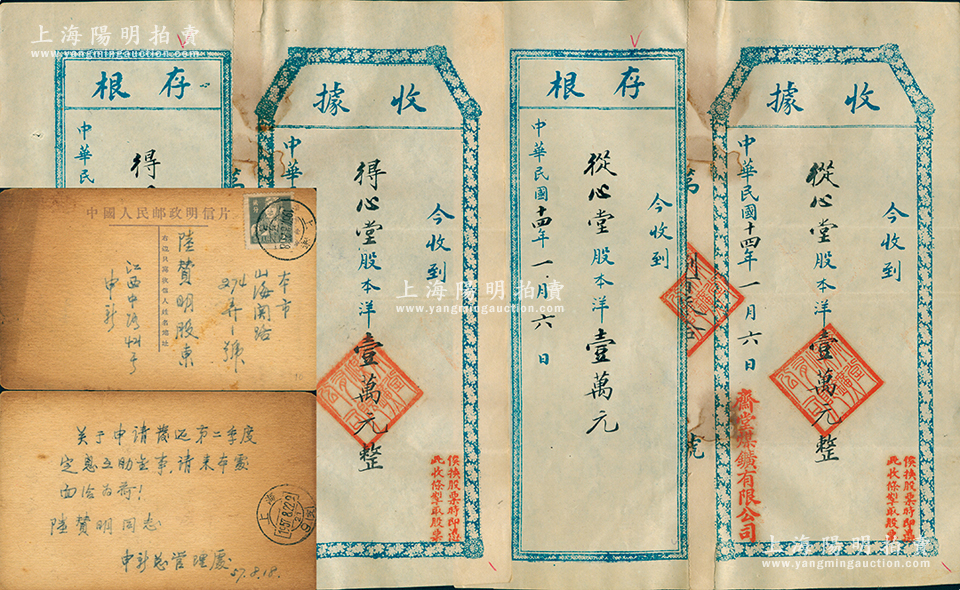 上海陽明拍賣
www.yangmingauction.com
存根
中華民
得
收據
今收到
得心堂股本洋壹萬元整
中華
俟換股票時即憑
此收條掣取股票
存根
今收到
從心堂股本洋壹萬元
中華民國十四年一月六日
第
號
收據
今收到
從心堂股本洋壹萬元整
中華民國十四年一月六日
齋堂煤鑛有限公司
俟換股票時即憑
此收條掣取股票
中國人民郵政明信片
本市
山海関路
陸贊明股東
江西中路
申新
关于申请發还第二季度
定息互助金事请来本處
面洽为荷!
陸贊明同志
申新总管理處
57.8.18.
上海
1957.8.22
上海陽明拍賣
www.yangmingauction.com
上海陽明拍賣
www.yangmingauction.com
上海陽明拍賣
www.yangmingauction.com